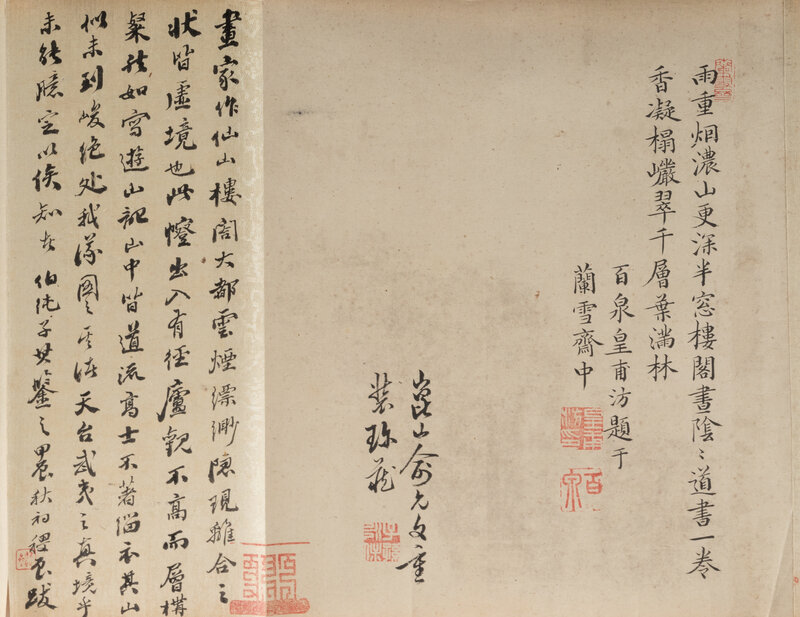 雨重烟濃山更深半窓樓閣晝陰〻道書一卷
香凝榻巗翠千層葉滿林
百泉皇甫汸題于
蘭雪齋中
崑山俞允文重
裝珍藏
畫家作仙山樓閣大都雲煙縹渺隱現離合之
狀皆虛境也此幛出入有徑廬觀不高而層構
粲然如寫遊山記山中皆道流高士不著緇衣其山
似未到峻絕處我疑圖天台武夷之真境乎
未能臆定以俟知者 伯純子其鑒之甲辰秋初稷臣跋